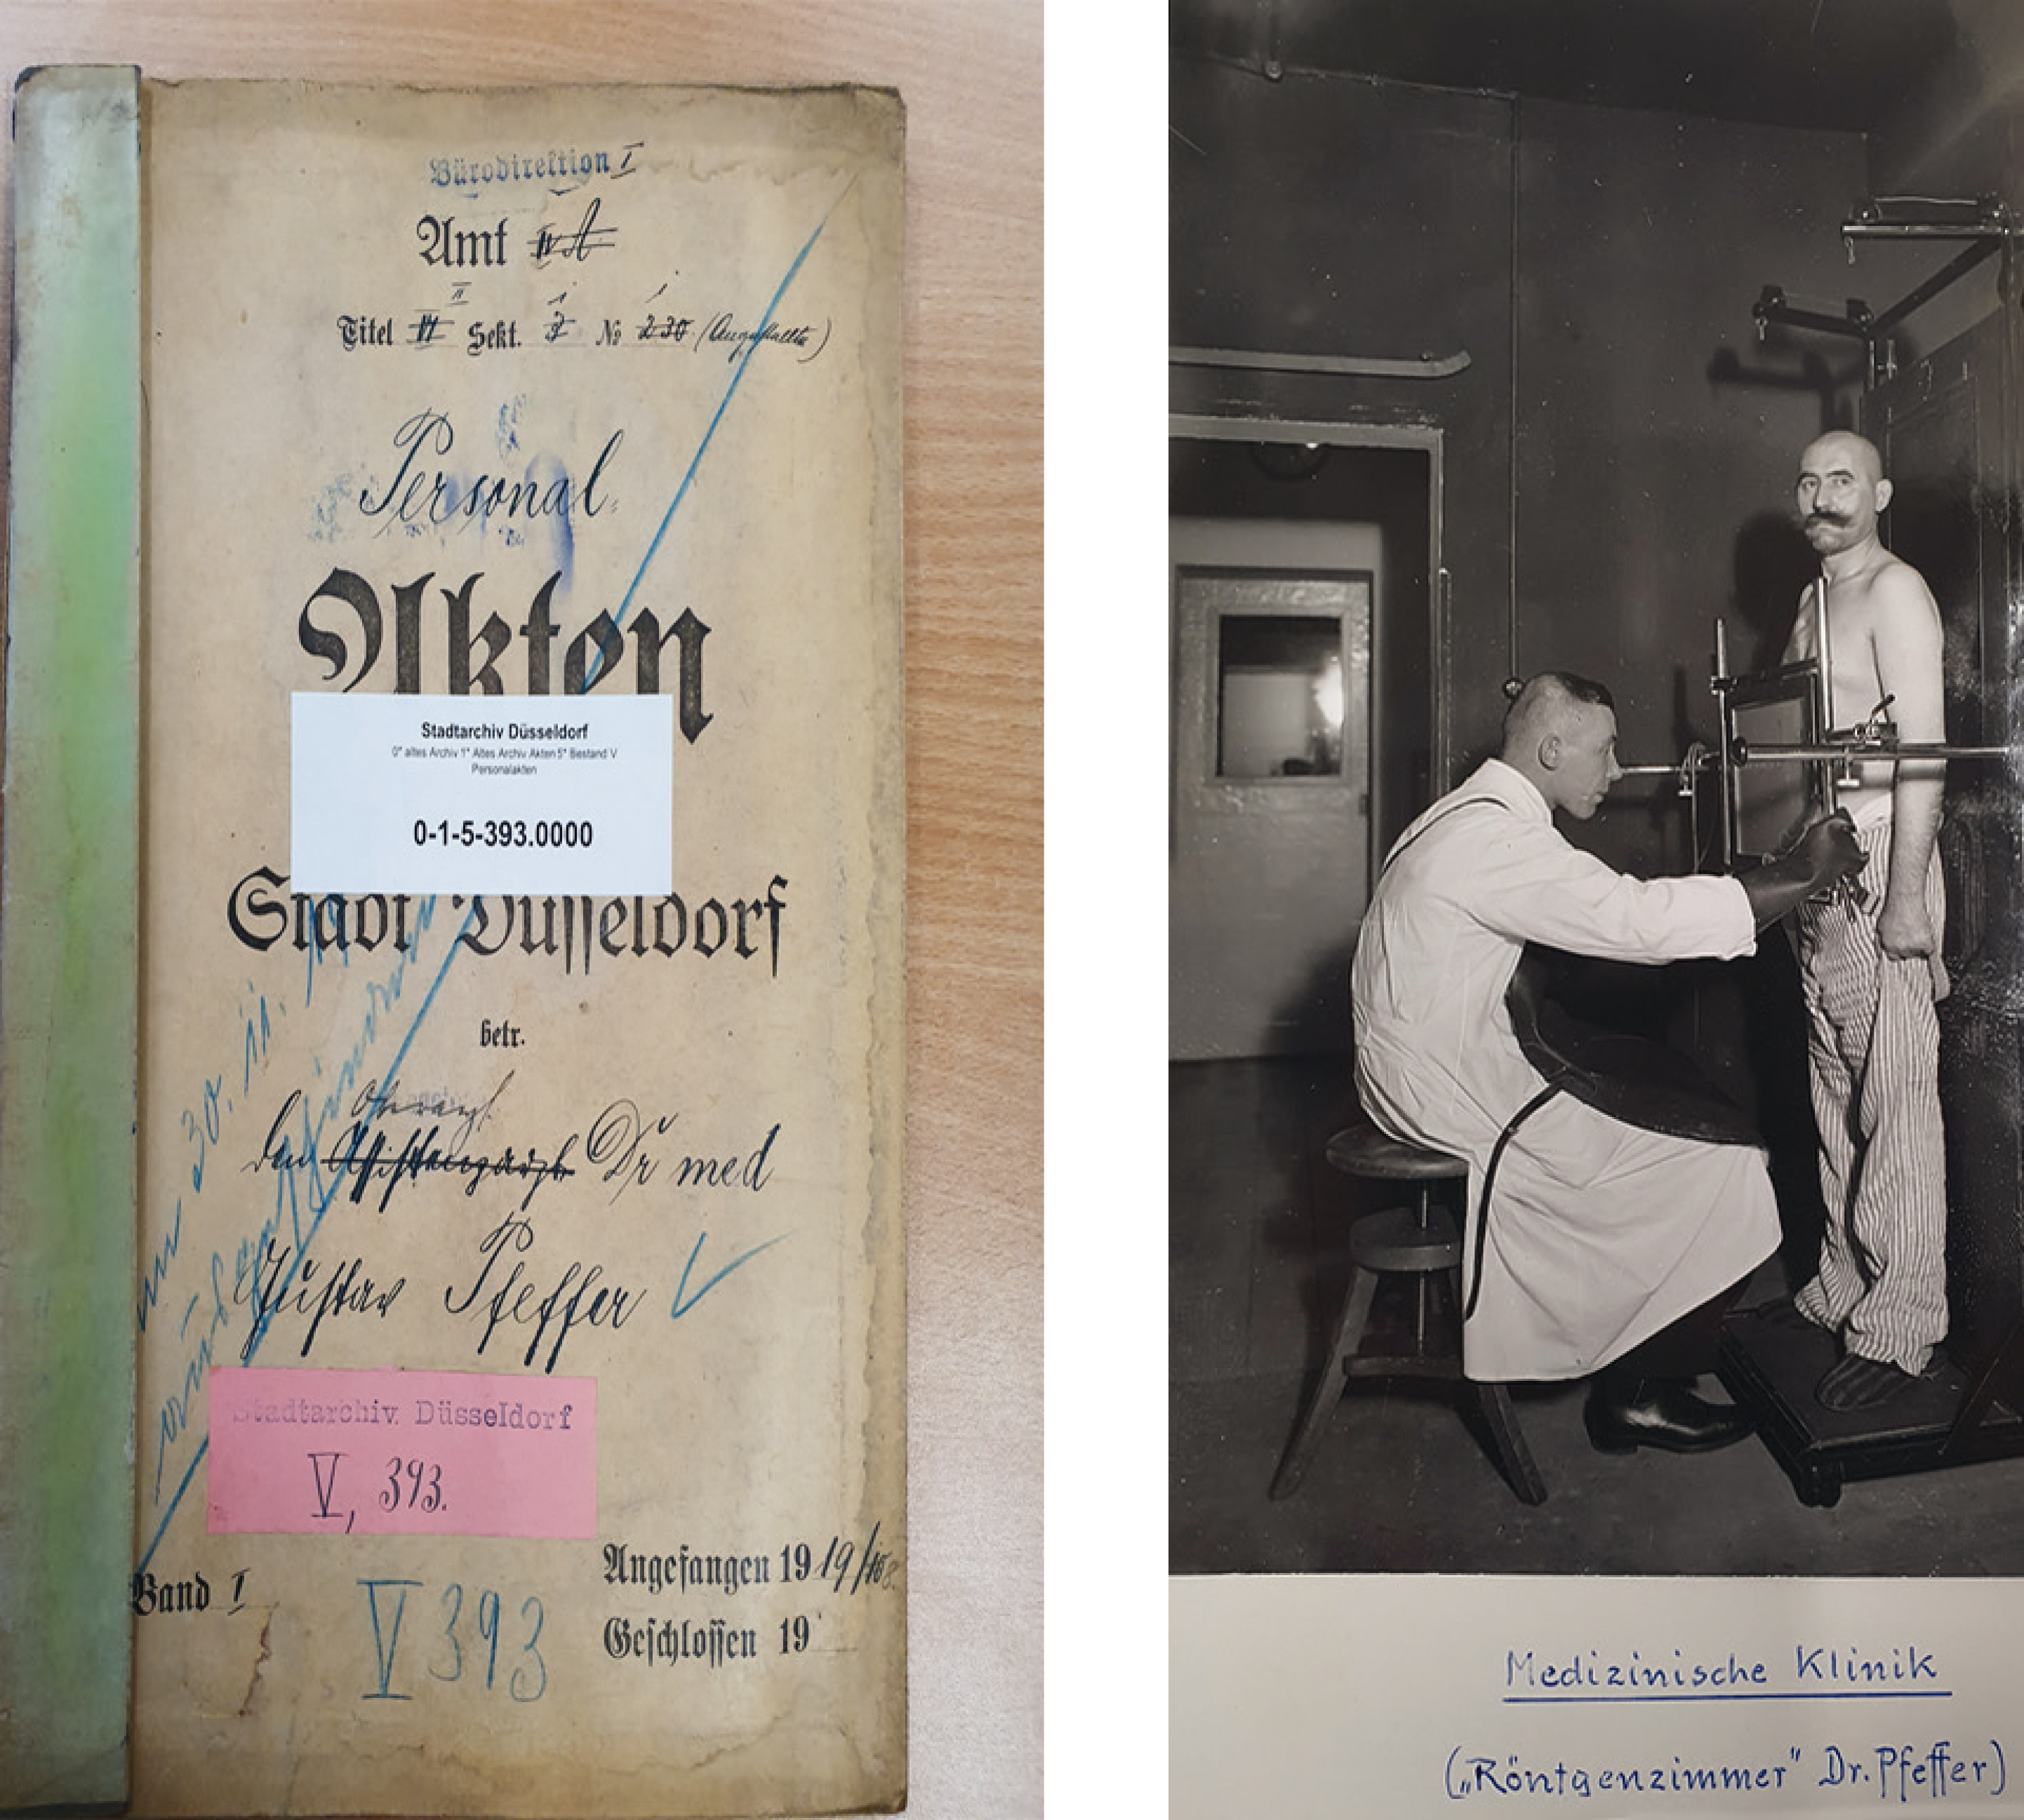 Bürodirektion I
Amt IV A
II 1 1
Titel II Sekt. 3 № 230 (Angestellte)
Personal-
Akten
Stadtarchiv Düsseldorf
0* altes Archiv 1* Altes Archiv Akten 5* Bestand V
Personalakten
0-1-5-393.0000
Stadt Düsseldorf
betr.
Oberarzt
den Assistenzarzt Dr med
Gustav Pfeffer
30. 11.
Stadtarchiv Düsseldorf
V, 393.
Angefangen 1919/
Band I
V 393
Geschlossen 19
Medizinische Klinik
(„Röntgenzimmer" Dr. Pfeffer)